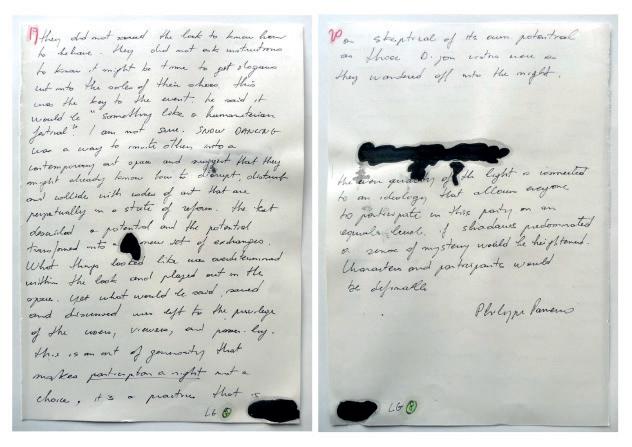 19
they did not need the book to know how
to behave. they did not ask instructions
to know it might be time to get slogans
cut into the soles of their shoes. this
was the key to the event. he said it
would be "something like a humanitarian
festival" I am not sure. SNOW DANCING
was a way to invite others into a
contemporary art space and suggest that they
might already know how to disrupt, disturb
and collide with codes of art that are
perpetually in a state of reform. the text
described a potential and the potential
transformed into a new set of exchanges.
What things looked like was overdetermined
within the book and played out in the
space. yet what would be said,
and discussed was left to the privilege
of the users, viewers, and passer-by.
this is an art of generosity that
makes participation a right not a
choice, it's a practice that is
LG 8
20
as skeptical of its own potential
as those D. Jon were as
they wandered off into the night.
the even quality of the light is connected
to an ideology that allows everyone
to participate in this party on an
equal level. if shadows predominated
a sense of mystery would be heightened.
Characters and participants would
be definable
Philippe Parreno
LG 8